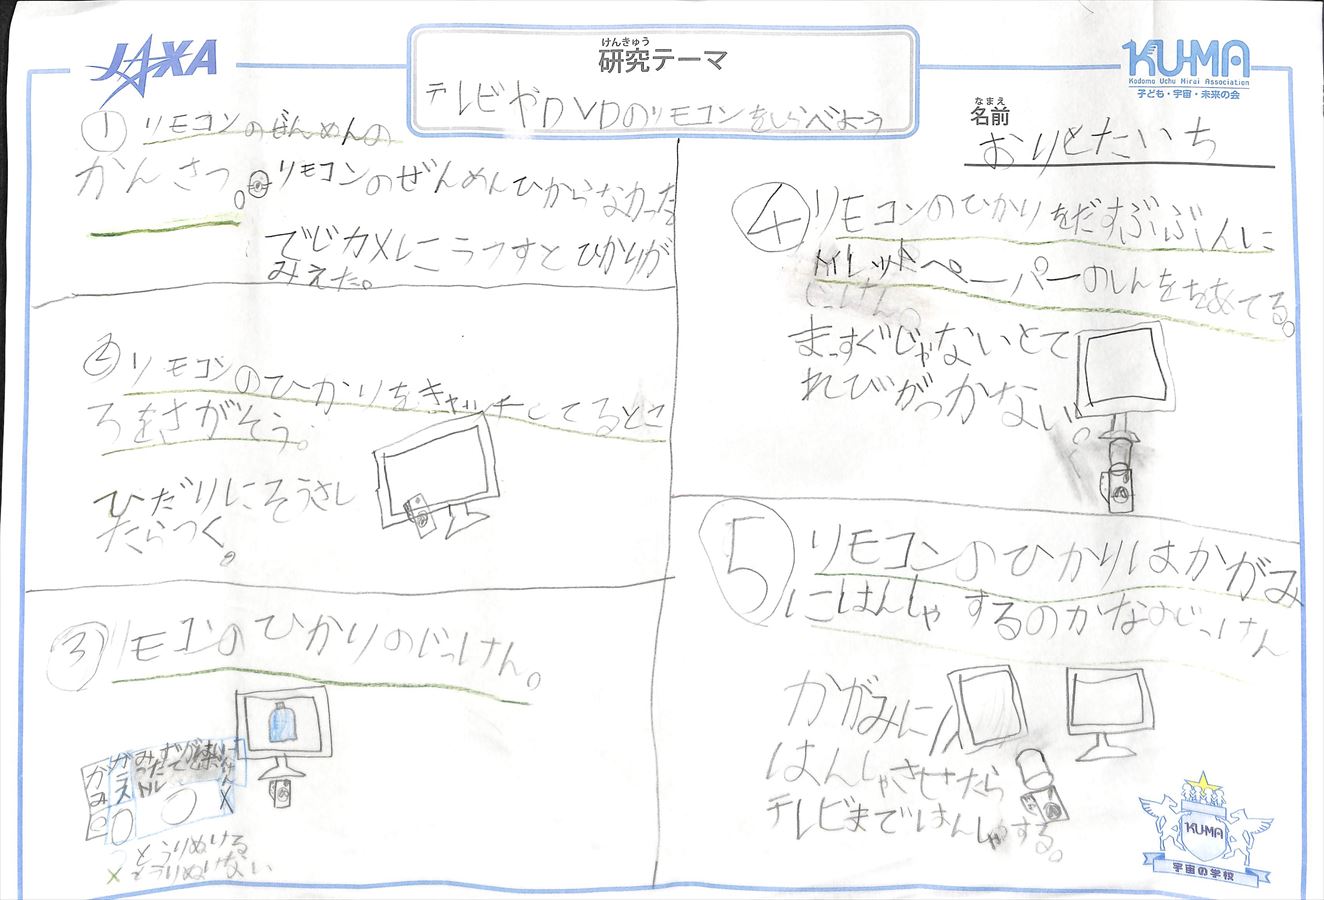 JAXA
けんきゅう
研究テーマ
テレビやDVDのリモコンをしらべよう
KU-MA
Kodomo Uchu Mirai Association
子ども・宇宙・未来の会
なまえ
名前
おりとたいち
① リモコンのぜんめんの
かんさつ。
リモコンのぜんめんひからなかった
でじカメにうつすとひかりが
みえた。
② リモコンのひかりをキャッチしてるとこ
ろをさがそう。
ひだりにそうさし
たらつく。
③ リモコンのひかりのじっけん。
かみ
ガラス
○
○
X
とうりぬける
X とうりぬけない
④ リモコンのひかりをだすぶぶんに
トイレットペーパーのしんをあてる。
じっけん。
まっすぐじゃないとて
れびがつかない。
⑤ リモコンのひかりはかがみ
にはんしゃするのかなのじっけん
かがみに
はんしゃさせたら
テレビまではんしゃする。
KU-MA
宇宙の学校